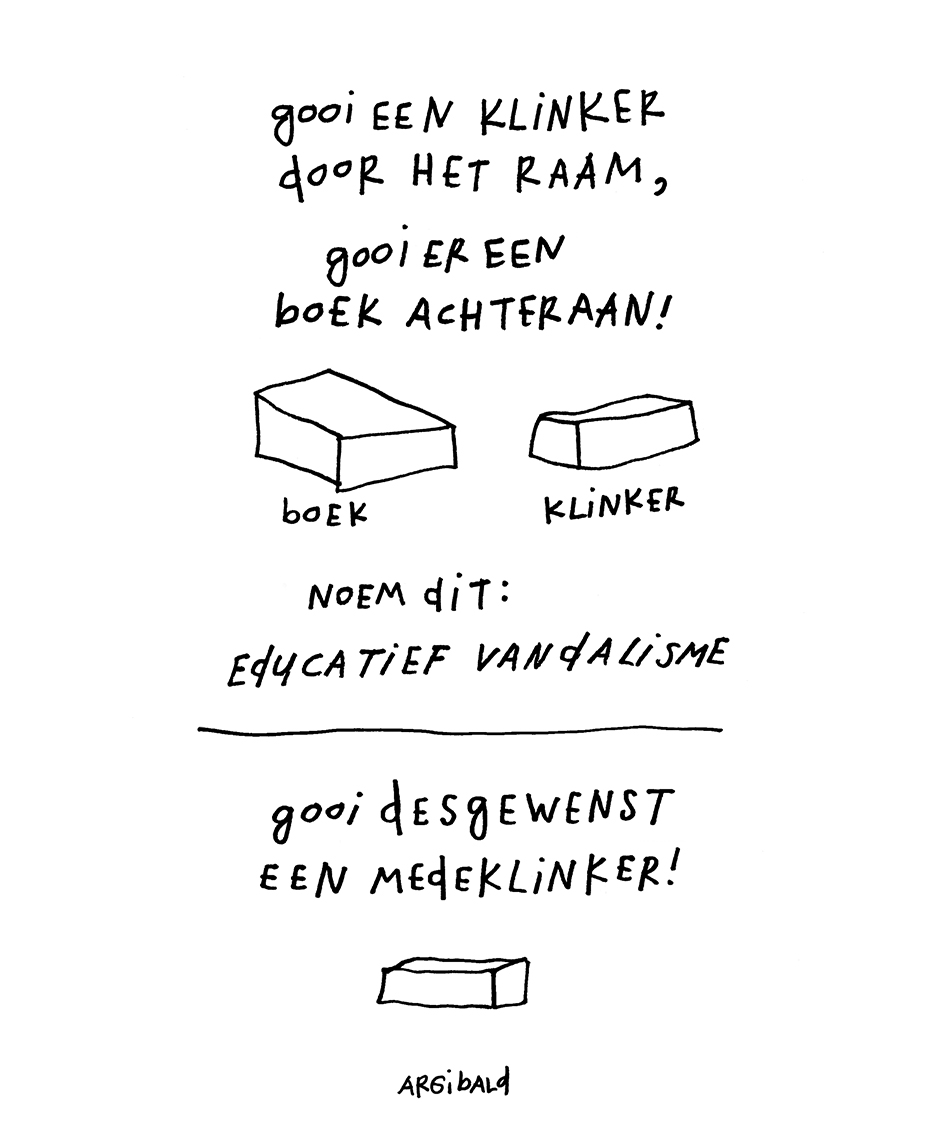 gooi EEN KLINKER
dooR HET RAAM,
gooi ER EEN
boEK ACHTERAAN!
boEK
KLINKER
NOEM diT:
EdUCATiEF VANdALiSME
gooi dESgEWENST
EEN MEdEKLiNKER!
ARGibALd